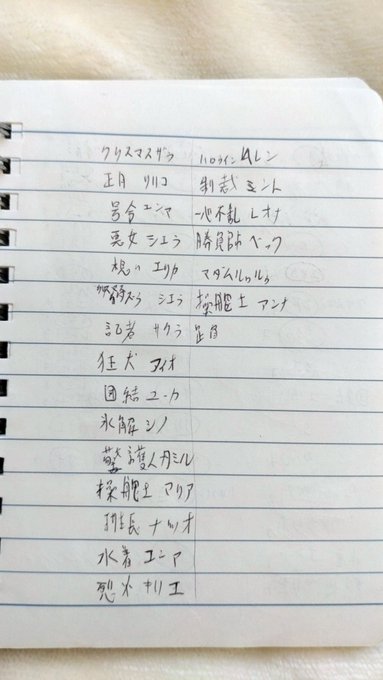 クリスマスザラ
正月 リリコ
号令 エンマ
悪女 シエラ
呪い エリカ
シエラ
記者 サクラ
狂犬 アイオ
団結 ユーカ
氷解 シノ
警護人 カミル
操舵士 マリア
班長 ナツオ
水着 エンマ
烈火 キリエ
ハロウィン カレン
制裁 ミント
一心不乱 レオナ
勝負師 ベック
マダム ルゥルゥ
操舵士 アンナ
正月